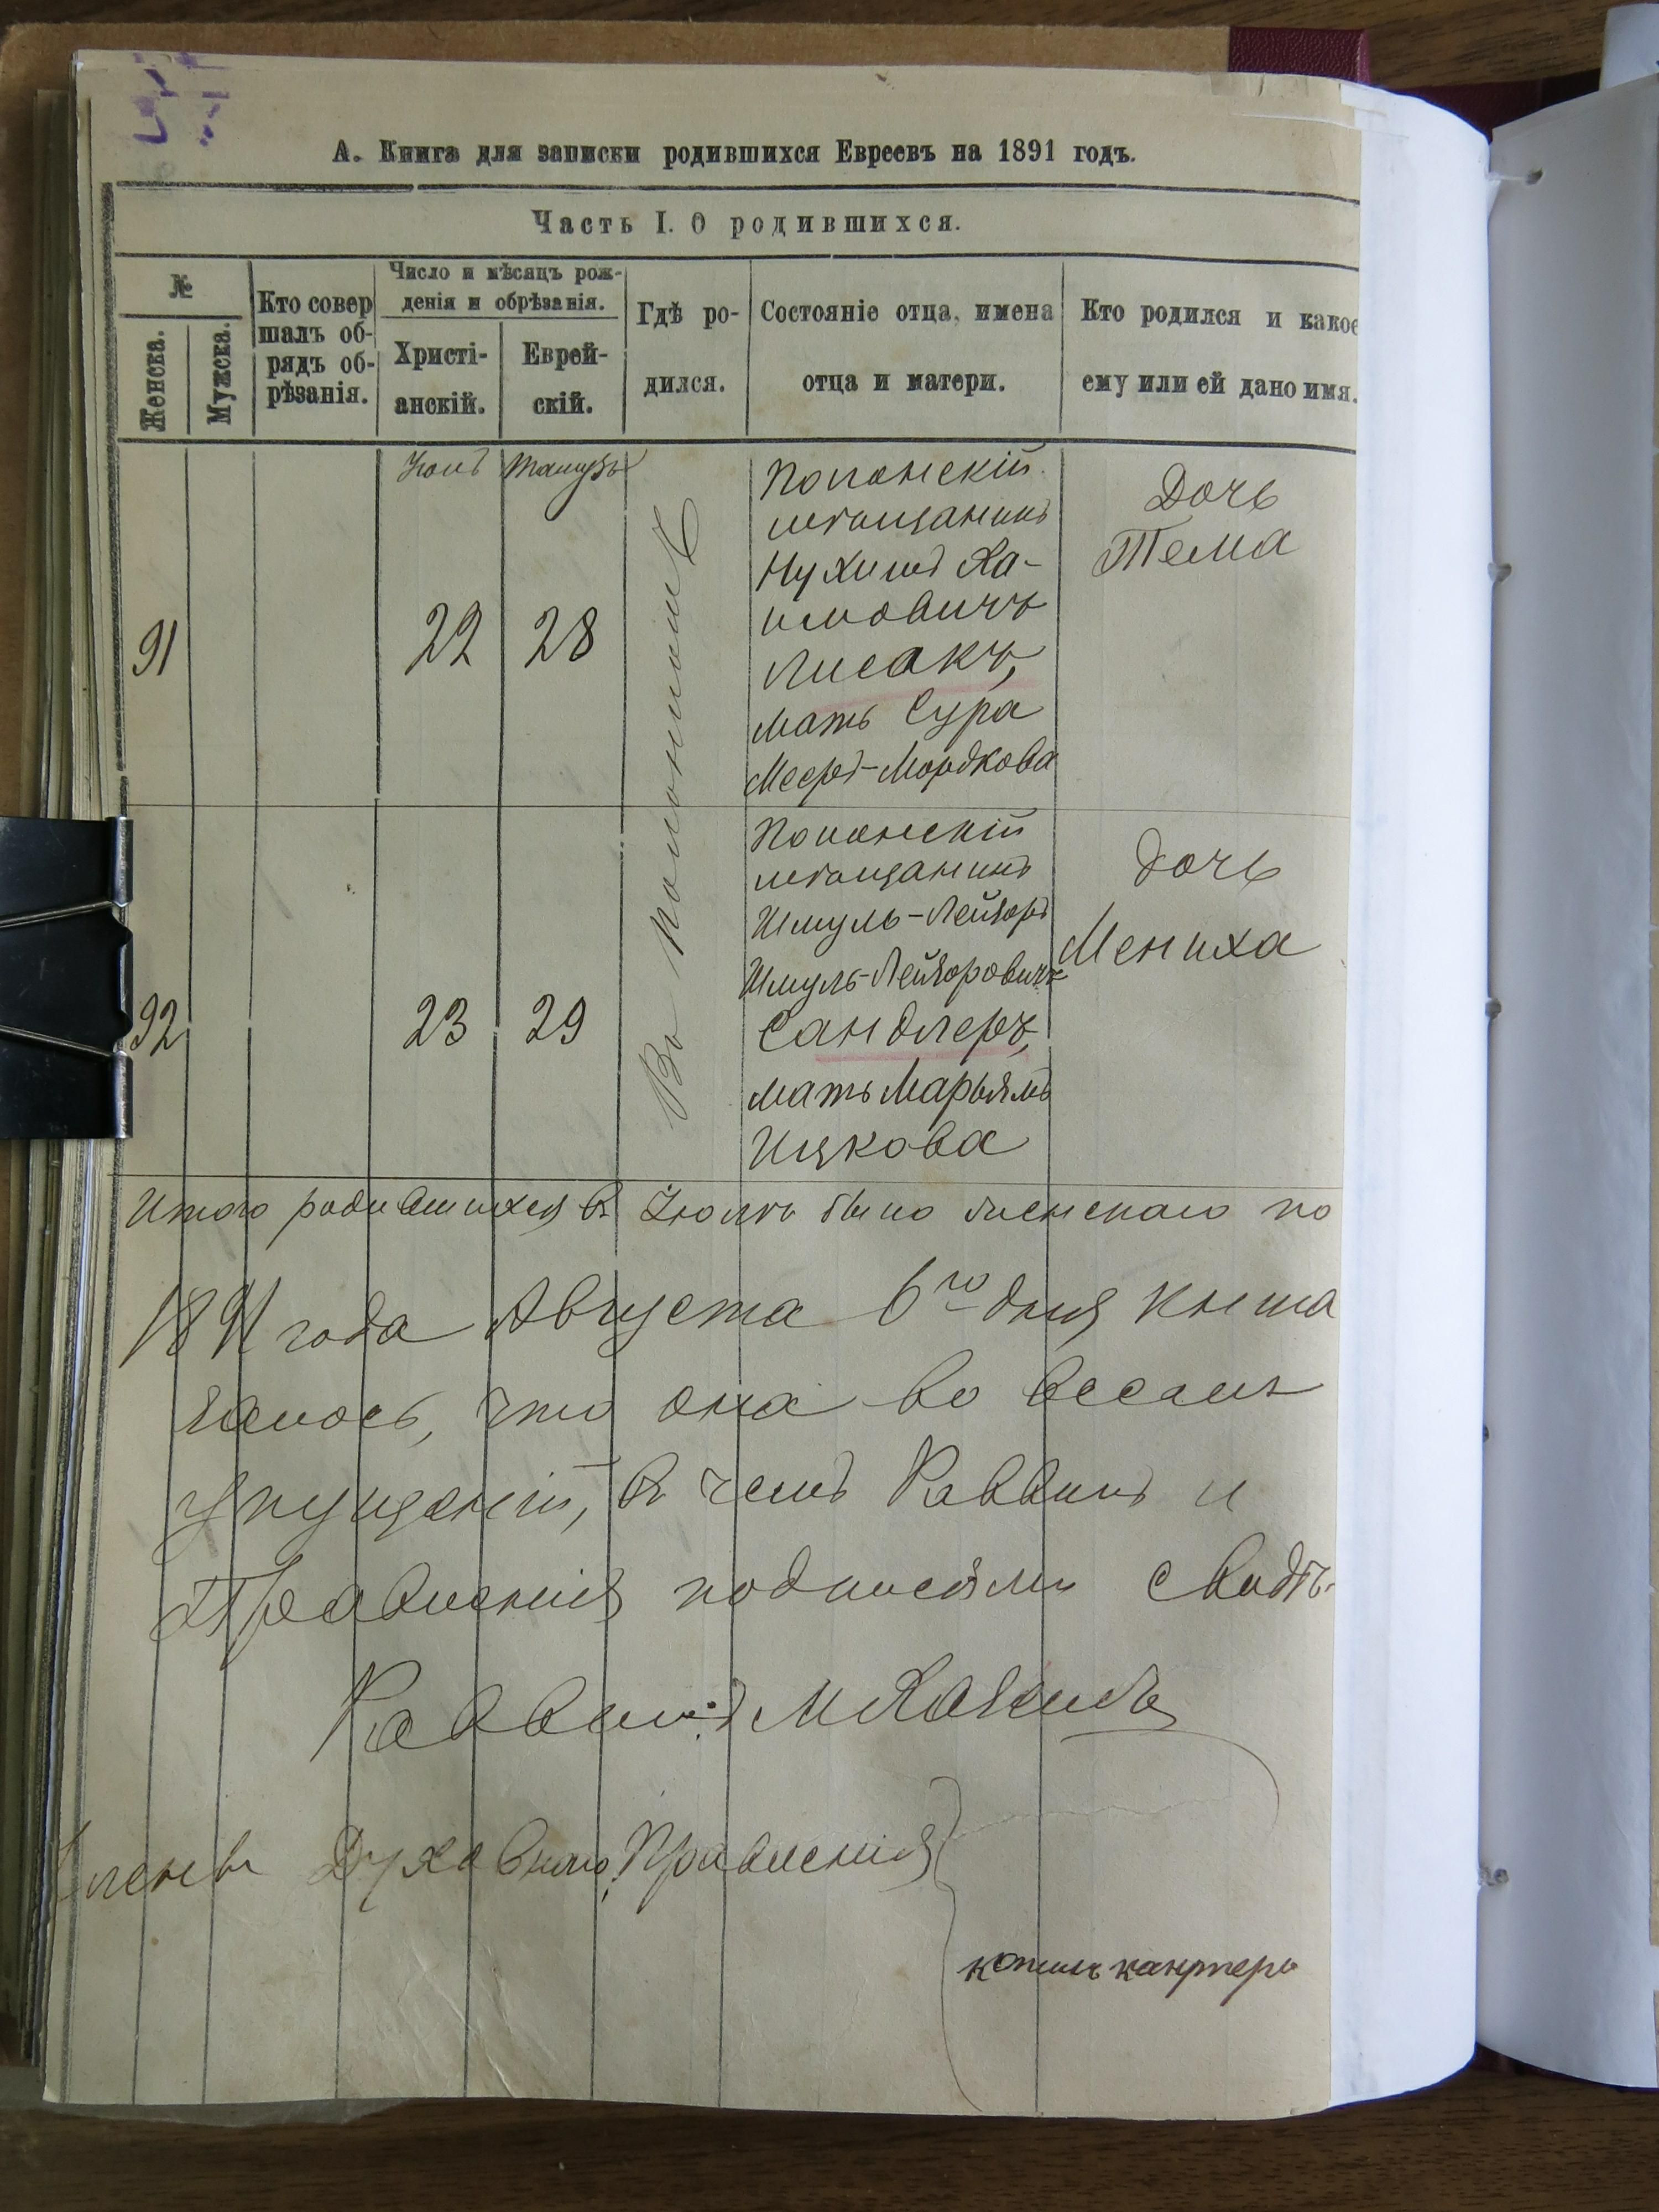 А. Книга для записки родившихся Евреевъ на 1891 годъ.
Часть I. О родившихся.
№
Женска.
Мужска.
Кто совер
шалъ об-
рядъ об-
рѣзанія.
Число и мѣсяцъ рож-
денія и обрѣзанія.
Христі-
анскій.
Еврей-
скій.
Гдѣ ро-
дился.
Состояніе отца, имена
отца и матери.
Кто родился и какое
ему или ей дано имя.
Тамузъ
91
22
28
мѣщанинъ
Нухимъ Ха-
имовичъ
Лисакъ,
мать Сура
Мееръ-Мордкова
Дочь
Тема
92
23
29
мѣщанинъ
Шмуль-Лейзоръ
Шмуль-Лейзоровичъ
Сандлеръ,
мать Марьямъ
Ицкова
Дочь
Мениха
Итого родившихся въ Іюлѣ было женскаго по
1891 года Августа 6го дня книга
залось, что она во всемъ
упущеній, въ чемъ Раввинъ и
Правленія подписями свидѣ-
Раввинъ М
Члены Духовнаго Правленія